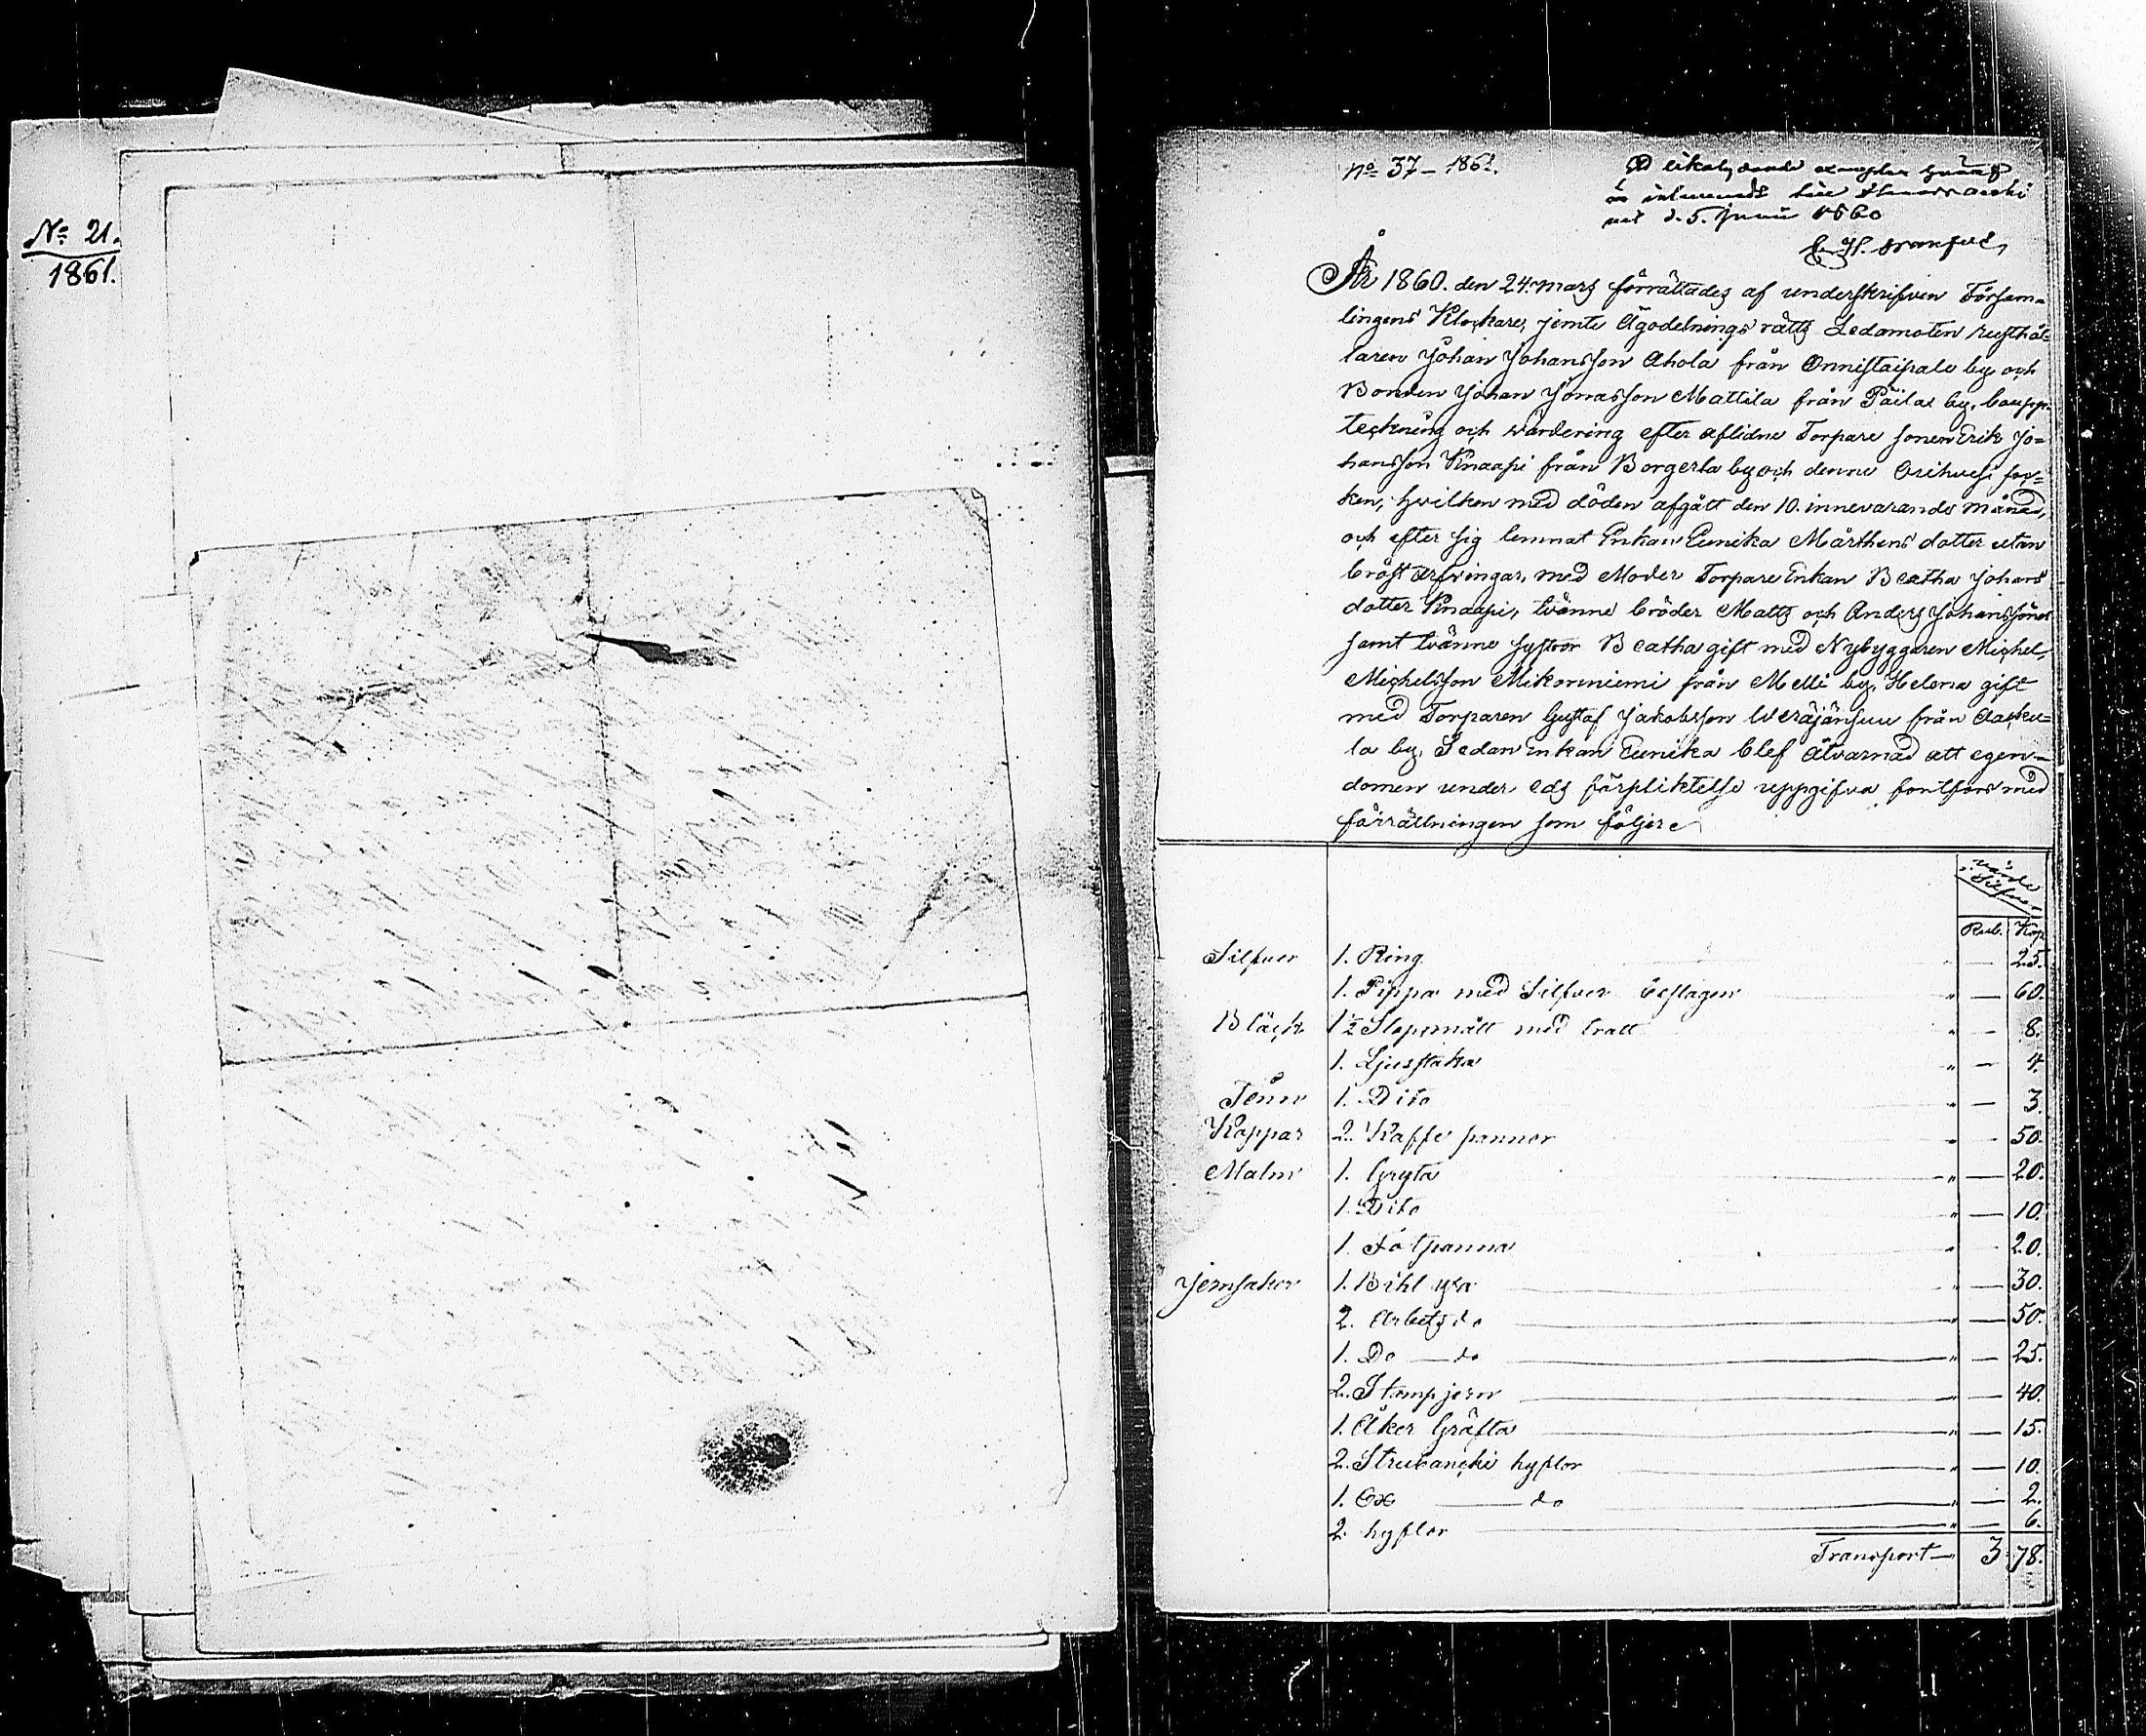 No 21.
1861.
no 37 - 1861.
Ett likalydande exemplar häraf
är inlemnadt
d. 5. Juni 1860
År 1860. den 24. mars förrättades af underskrifven Försam-
lingens Klockare, jemte Ägodelnings rätts Ledamoten rusthål-
laren Johan Johansson Ahola från Onnistaipale by och
Bonden Johan Jonasson Mattila från Päilax by, boupp-
teckning och värdering efter aflidne Torpare sonen Erik Jo-
hansson Knaapi från Borgerla by och denne Orihvesi soc-
ken, hvilken med döden afgått den 10. innevarande månad,
och efter sig lemnat Enkan Eunika Mårthens dotter utan
bröst arfvingar, med Moder Torpare Enkan Beatha Johans
dotter Knaapi, tvänne bröder Matts och Anders Johanssöner
samt tvänne systrar Beatha gift med Nybyggaren Michel
Michelsson Mikonniemi från Melli by, Helena gift
med Torparen Gustaf Jakobsson från
la by. Sedan Enkan Eunika blef åtvarnad att egen-
domen under eds förpliktelse uppgifva fortfors med
förrättningen som följer
Värde
i Silfver
Rub. Kop
Silfver 1. Ring " — 25.
1. Pippa med Silfver beslagen " — 60.
Bläck 1 1/2 Stopsmått med tratt " — 8.
1. Ljusstaka " — 4.
Tenn 1. Dito " — 3.
Koppar 2. Kaffe pannor " — 50.
Malm 1. Gryta " — 20.
1. Dito " — 10.
1. Fotpanna " — 20.
Jernsaker 1. Bihl yxa " — 30.
2. Arbets do " — 50.
1. Do — do " — 25.
2. Stampjern " — 40.
1. Åker Gräfta " — 15.
2. Strubancks hyflor " — 10.
1. Ox — do " — 2.
2. hyflor " — 6.
Transport — 3 78.